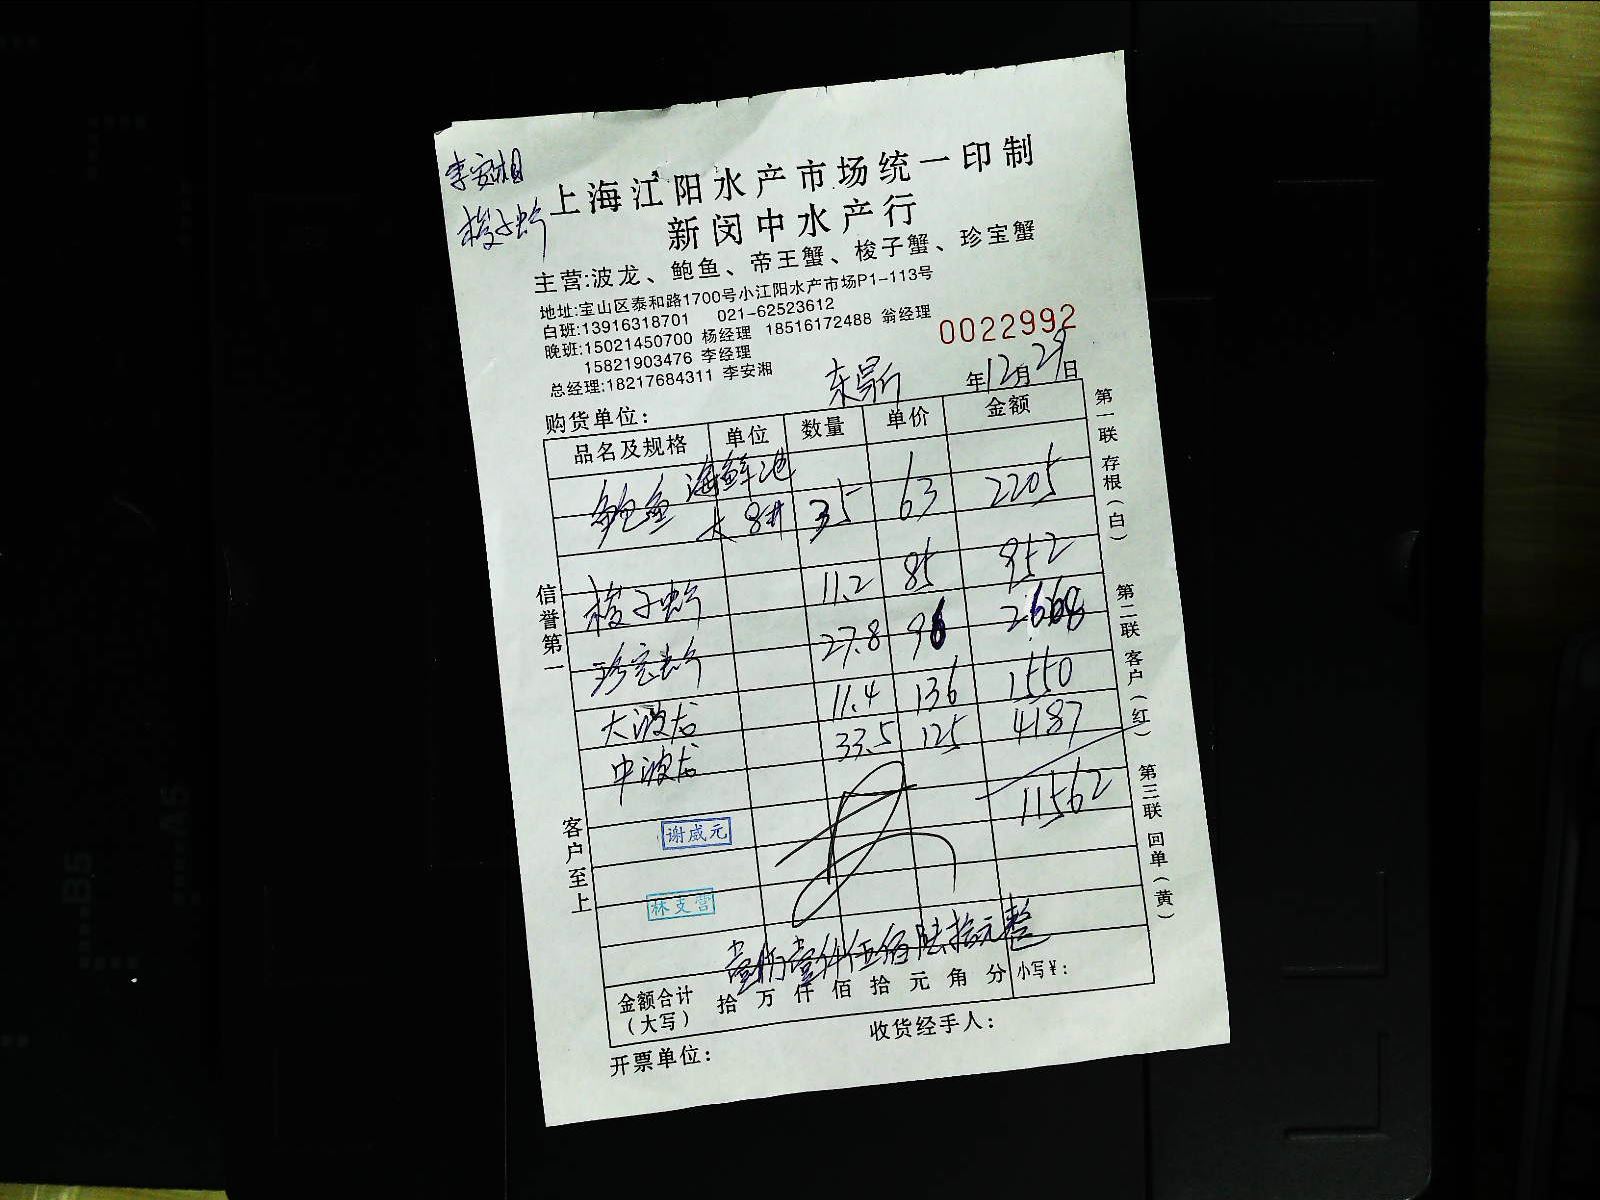 李安湘
梭子蟹
上海江阳水产市场统一印制
新闵中水产行
主营:波龙、鲍鱼、帝王蟹、梭子蟹、珍宝蟹
地址:宝山区泰和路1700号小江阳水产市场P1-113号
白班:13916318701 021-62523612
晚班:15021450700 杨经理 18516172488 翁经理
15821903476 李经理
总经理:18217684311 李安湘
0022992
年12月29日
购货单位:
品名及规格 单位 数量 单价 金额
海鲜池
鲍鱼 大 8# 35 63 2205
梭子蟹 11.2 85 952
珍宝蟹 27.8 96 2668
大波龙 11.4 136 1550
中波龙 33.5 125 4187
11562
谢威元
林支营
壹万壹仟伍佰陆拾元整
金额合计(大写) 拾 万 仟 佰 拾 元 角 分 小写¥:
开票单位: 收货经手人:
信誉第一
客户至上
第一联 存根(白)
第二联 客户(红)
第三联 回单(黄)